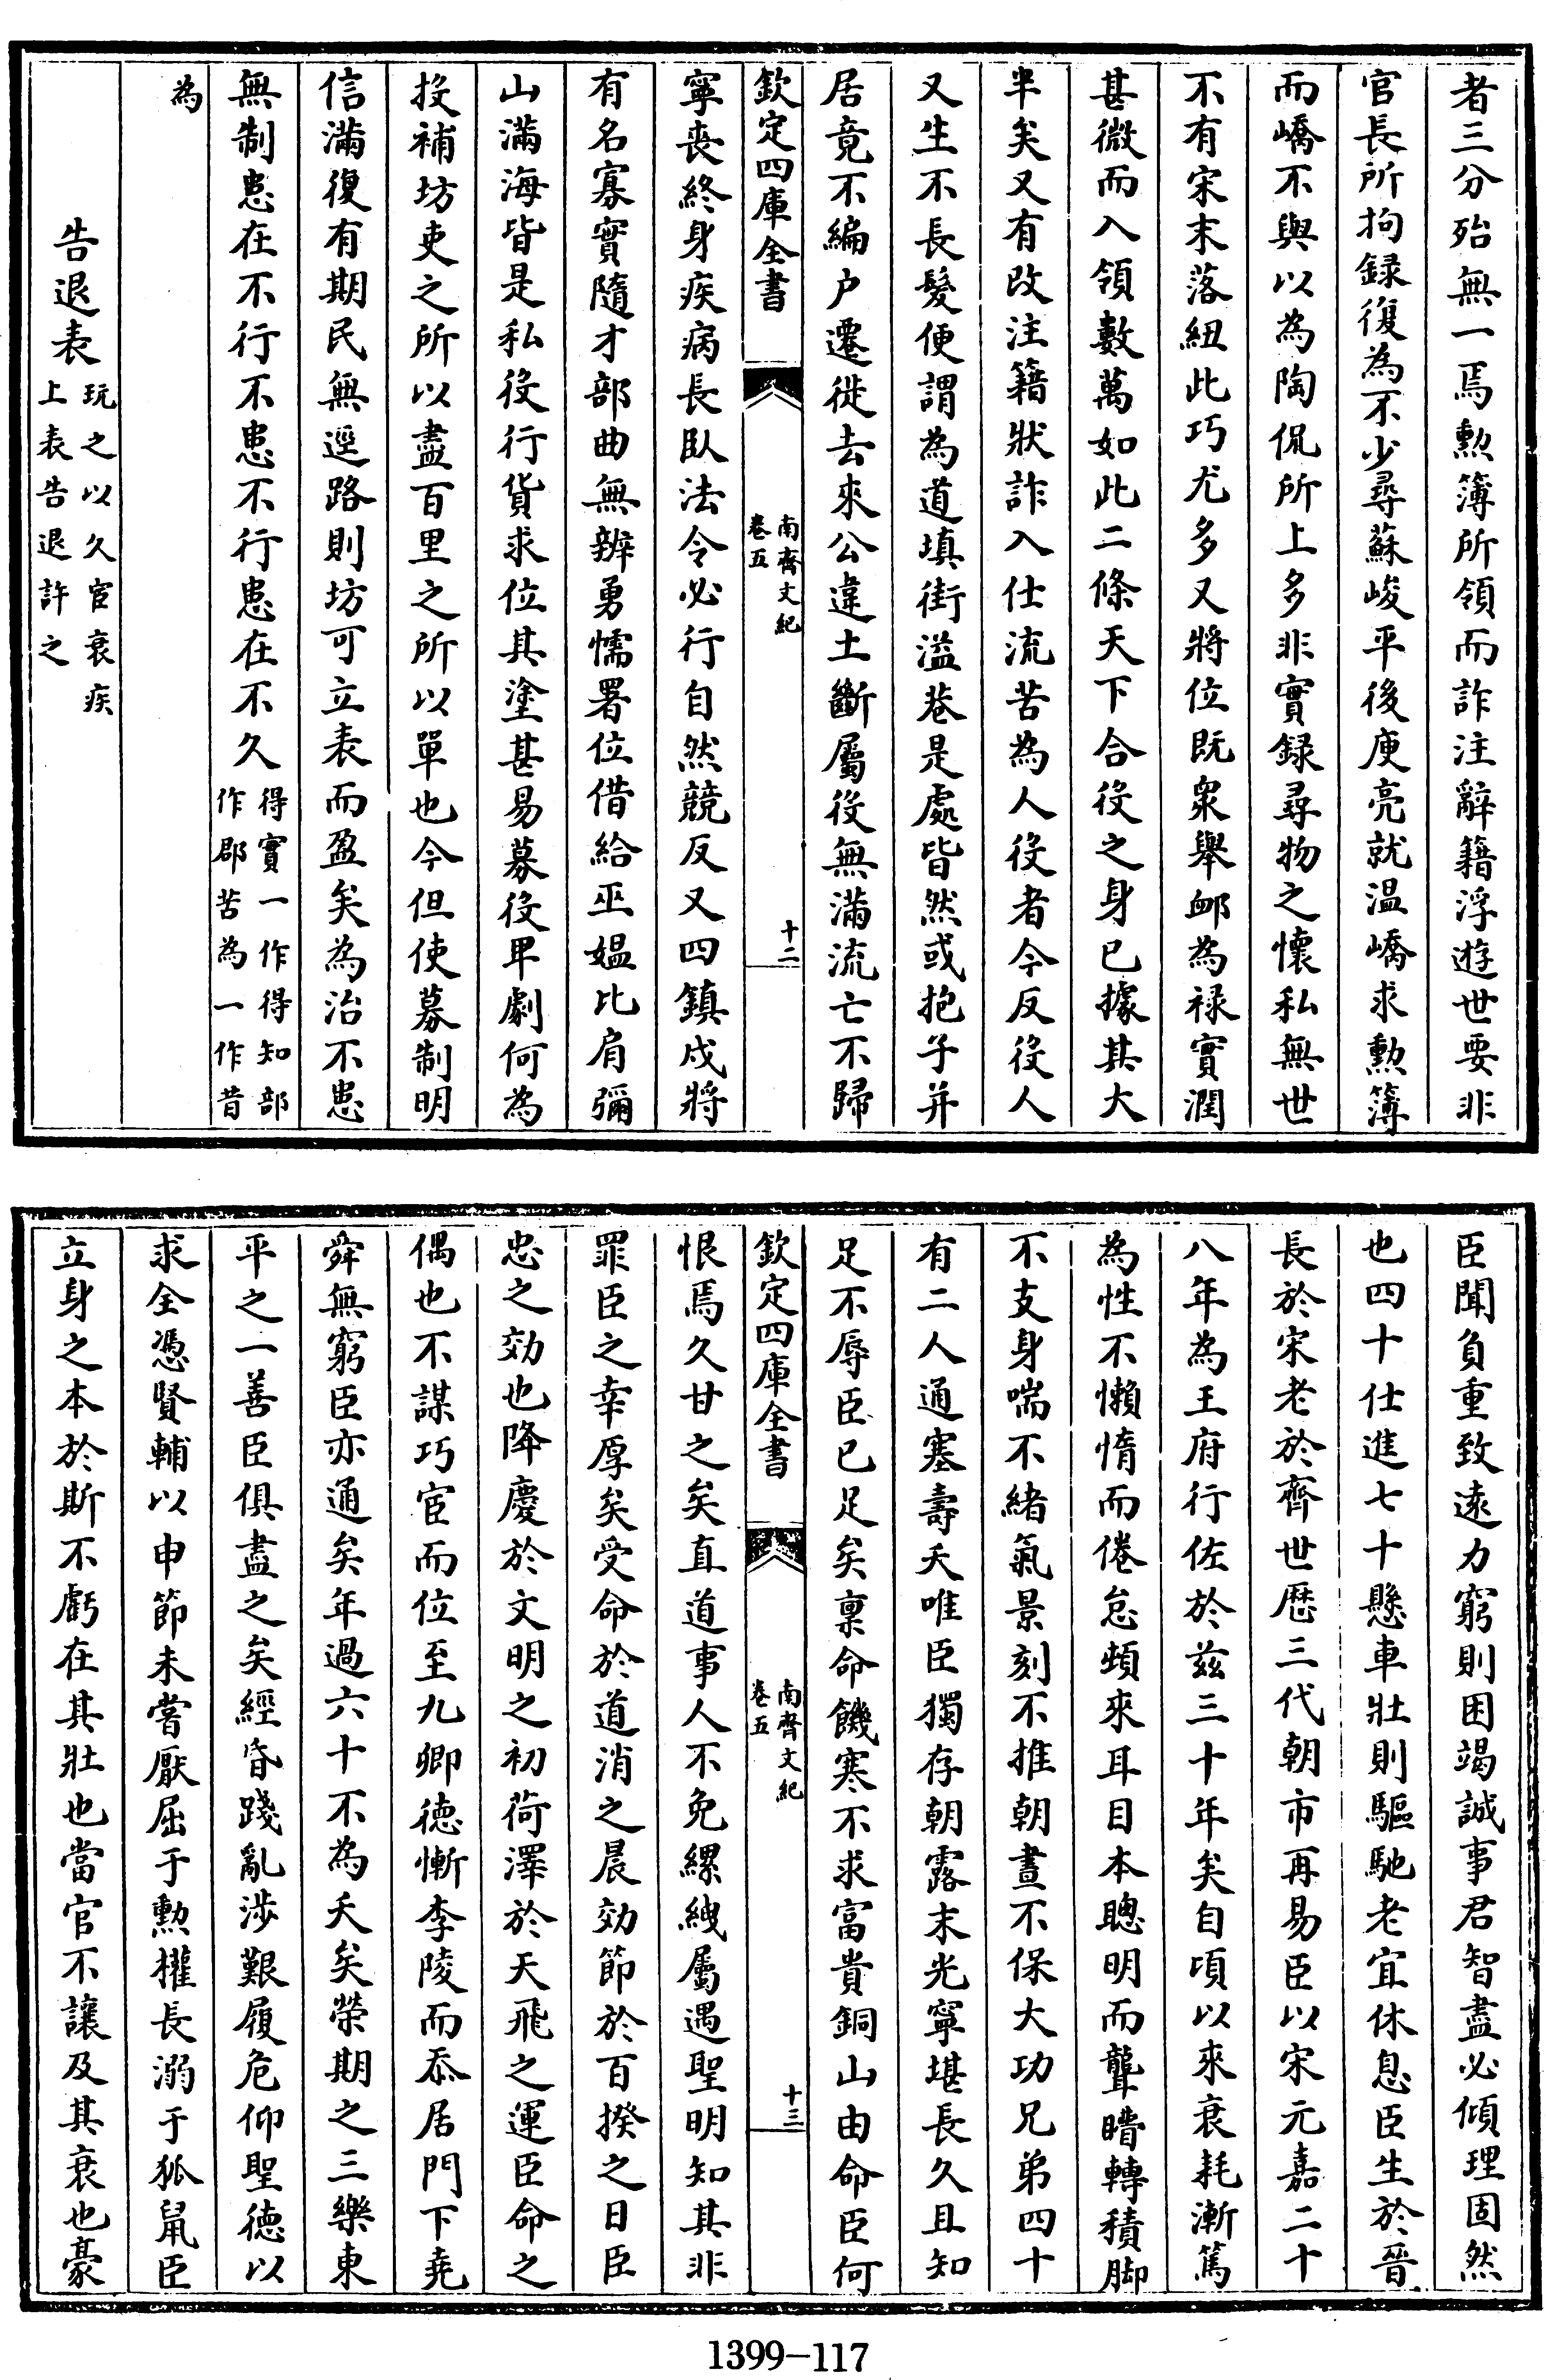 者三分殆無一焉勲簿所領而詐注辭籍浮遊世要非
官長所拘録復為不少尋蘇峻平後庾亮就温嶠求勲簿
而嶠不與以為陶侃所上多非實録尋物之懷私無世
不有宋末落紐此巧尤多又將位既衆舉䘏為禄實潤
甚微而入領數萬如此二條天下合役之身已據其大
半矣又有改注籍狀詐入仕流苦為人役者今反役人
又生不長髮便謂為道填街溢巷是處皆然或抱子并
居竟不編户遷徙去來公違土斷屬役無滿流亡不歸
欽定四庫全書
南齊文紀
卷五
十二
寧喪終身疾病長臥法令必行自然競反又四鎮戍將
有名寡實隨才部曲無辨勇懦署位借給巫媼比肩彌
山滿海皆是私役行貨求位其塗甚易募役卑劇何為
投補坊吏之所以盡百里之所以單也今但使募制明
信滿復有期民無逕路則坊可立表而盈矣為治不患
無制患在不行不患不行患在不久得實一作得知部
作郡苦為一作昔
為
告退表玩之以久宦衰疾
上表告退許之
臣聞負重致遠力窮則困竭誠事君智盡必傾理固然
也四十仕進七十懸車壯則驅馳老宜休息臣生於晉
長於宋老於齊世歴三代朝市再易臣以宋元嘉二十
八年為王府行佐於兹三十年矣自頃以來衰耗漸篤
為性不懶惰而倦怠頻來耳目本聰明而聾瞶轉積脚
不支身喘不緒氣景刻不推朝晝不保大功兄弟四十
有二人通塞壽夭唯臣獨存朝露末光寧堪長久且知
足不辱臣已足矣禀命饑寒不求富貴銅山由命臣何
欽定四庫全書
南齊文紀
卷五
十三
恨焉久甘之矣直道事人不免縲絏屬遇聖明知其非
罪臣之幸厚矣受命於道消之晨効節於百揆之日臣
忠之効也降慶於文明之初荷澤於天飛之運臣命之
偶也不謀巧宦而位至九卿徳慚李陵而忝居門下堯
舜無窮臣亦通矣年過六十不為夭矣榮期之三樂東
平之一善臣俱盡之矣經昏踐亂涉艱履危仰聖徳以
求全憑賢輔以申節未嘗厭屈于勲權長溺于狐鼠臣
立身之本於斯不虧在其壯也當官不讓及其衰也豪
1399-117